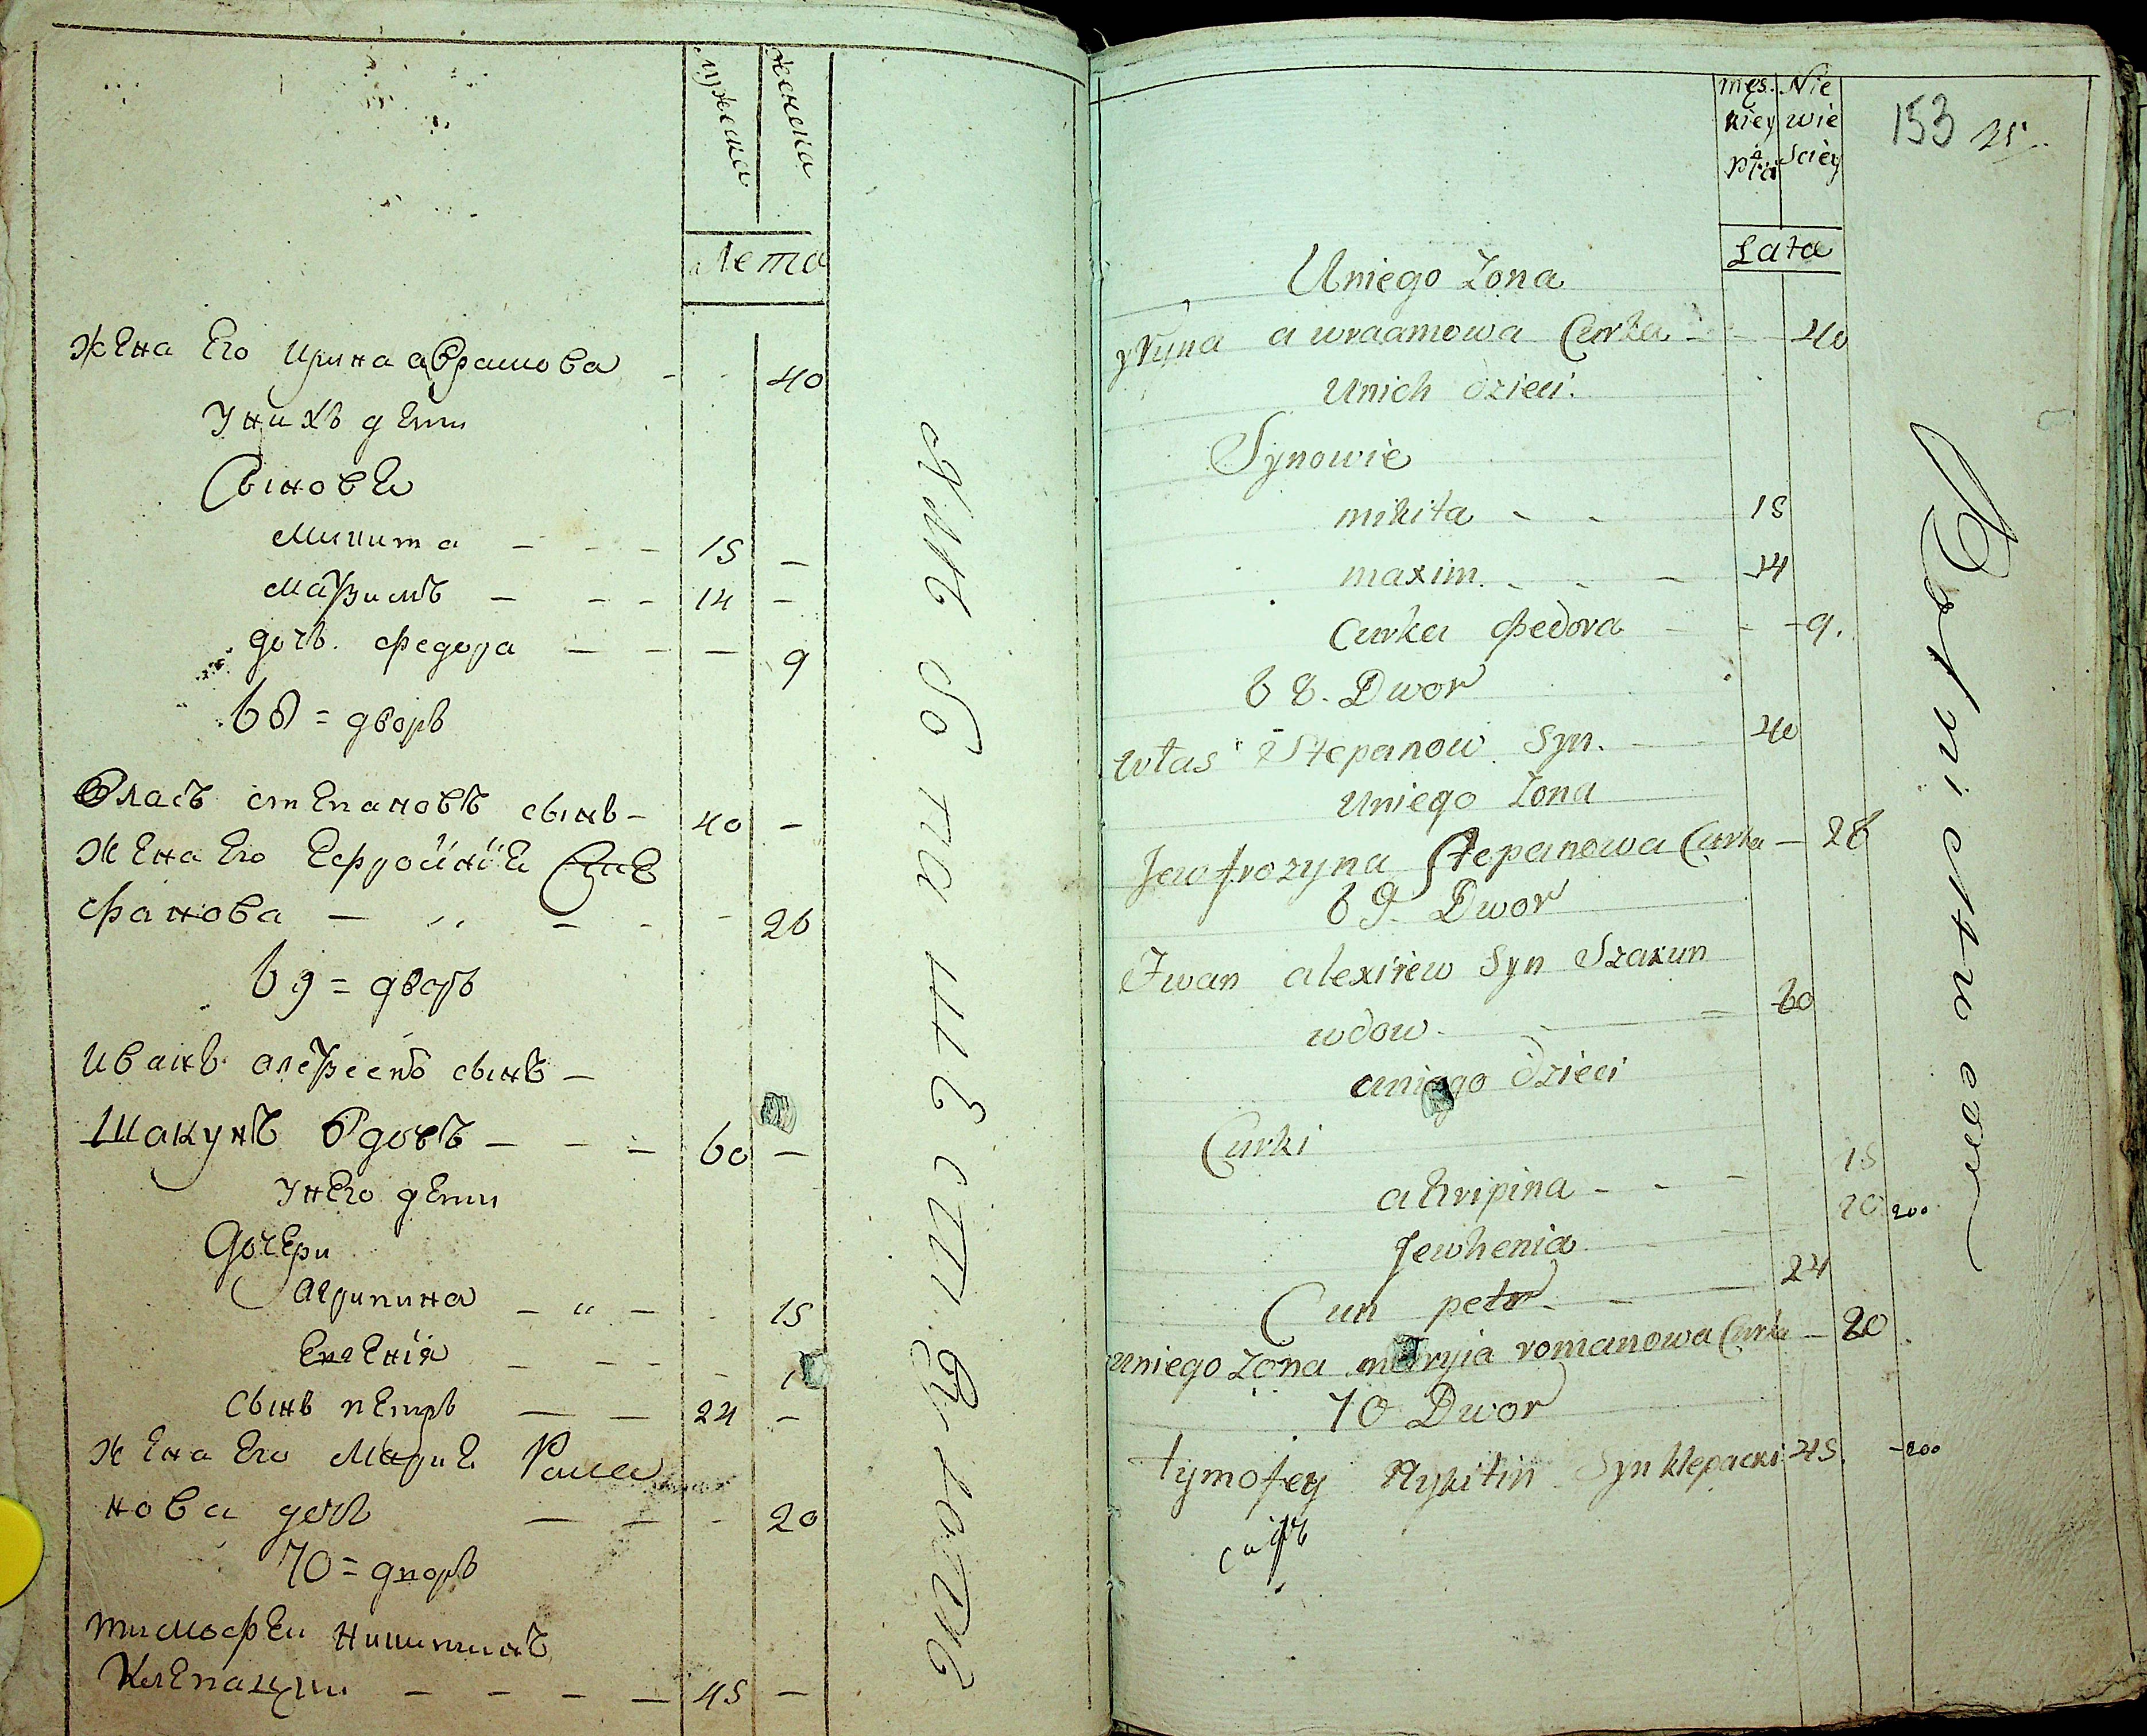 мужска
женска
лета
жена его ирина аврамова - - 40
у нихъ дети
Сынове
Микита - - - 15 -
маѯимъ - - - 14 -
дочь. федора - - - 9
68 = дворъ
Власъ степановъ сынъ - 40 -
жена его
фанова - - - - 26
69 = дворъ
иванъ алеѯеевъ сынъ -
Шакунъ вдовъ - - - 60 -
у него дети
дочери
Агрипина - - - - 15
Евгения - - - -
сынъ петръ - - 24 -
жена его Марие Рома
нова дочь - - - 20
70 = дворъ
тимофеи никитинъ
Клепацки - - - - 45 -
męs. Nie
kiey wie
płci sciey
153 25
Lata
Uniego Zona
yryna awraamowa Curka - - 40
Unich dzieci.
Synowie
mikita - - 15
maxim. - - - 14
Curka Федоra - - - 9.
68. Dwor
Własˢ Stepanow Syn. - 40
Uniego Zona
Jewfrozyna Stepanowa Curka - 26
69. Dwor
Iwan alexiiew Syn Szakun
wdow. - - 60
uniego dzieci
Curki
ahripina - - - 15
Jewhenia - - 20 200
Cun petr - - - 24
uniego Zona maryia romanowa Curka - 20
70 Dwor
tymofey Nykitin Syn klepacki 45. - 200